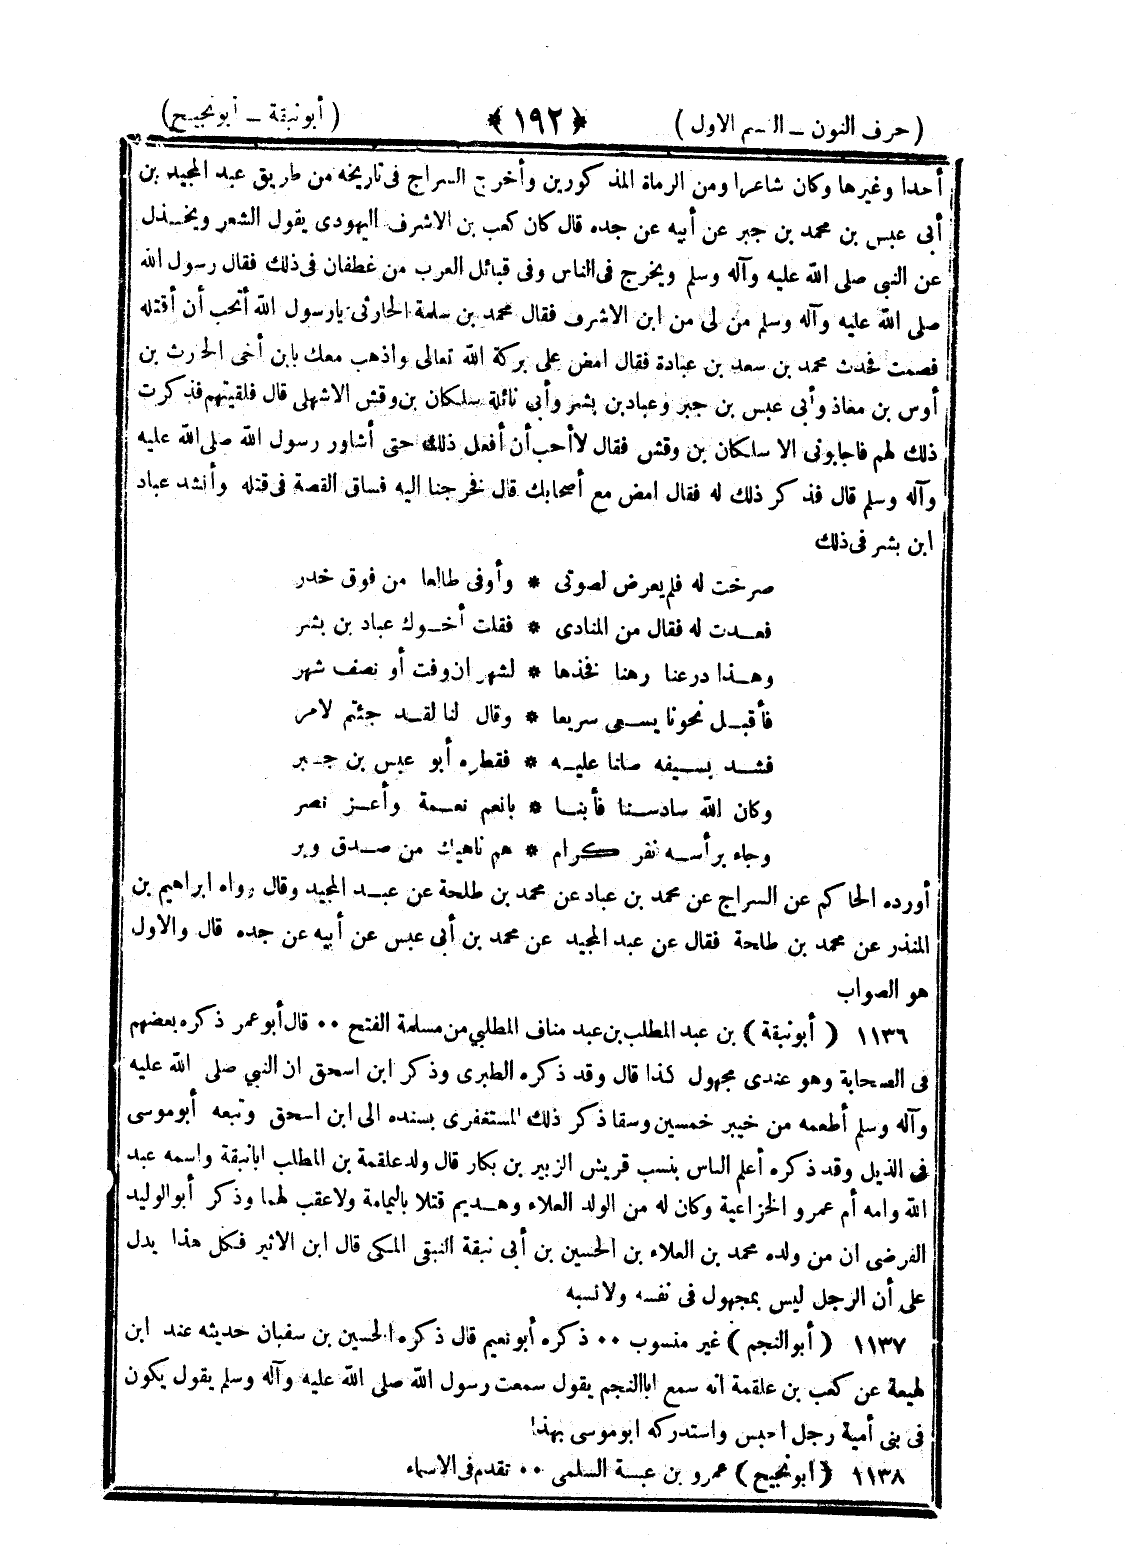 ( حرف النون ــ القسم الاول ) ﴿ ١٩٢ ﴾ ( أبونبقة ــ ابونجيح )
أحدا وغيرها وكان شاعرا ومن الرماة المذكورين وأخرج السراج فى تاريخه من طريق عبد المجيد بن
أبى عبس بن محمد بن جبر عن أبيه عن جده قال كان كعب بن الاشرف اليهودى يقول الشعر ويخذل
عن النبي صلى الله عليه وآله وسلم ويخرج فى الناس وفى قبائل العرب من غطفان فى ذلك فقال رسول الله
صلى الله عليه وآله وسلم من لى من ابن الاشرف فقال محمد بن سلمة الحارثى يارسول الله أتحب أن أقتله
فصمت فحدث محمد بن سعد بن عبادة فقال امض على بركة الله تعالى واذهب معك بابن أخى الحرث بن
أوس بن معاذ وأبى عبس بن جبر وعباد بن بشر وأبى نائلة سلكان بن وقش الاشهلى قال فلقيتهم فذكرت
ذلك لهم فاجابونى الا سلكان بن وقش فقال لاأحب أن أفعل ذلك حتى أشاور رسول الله صلى الله عليه
وآله وسلم قال فذكر ذلك له فقال امض مع أصحابك قال فخرجنا اليه فساق القصة فى قتله وأنشد عباد
ابن بشر فى ذلك
صرخت له فلم يعرض لصوتى * وأوفى طالعا من فوق خدر
فعدت له فقال من المنادى * فقلت أخوك عباد بن بشر
وهذا درعنا رهنا فخذها * لشهر ان وفت أو نصف شهر
فأقبل نحونا يسعى سريعا * وقال لنا لقد جئتم لامر
فشد بسيفه صلتا عليه * فقطره أبو عبس بن جبر
وكان الله سادسنا فأبنا * بانعم نعمة وأعز نصر
وجاء برأسه نفر كرام * هم ناهيك من صدق وبر
أورده الحاكم عن السراج عن محمد بن عباد عن محمد بن طلحة عن عبد المجيد وقال رواه ابراهيم بن
المنذر عن محمد بن طلحة فقال عن عبد المجيد عن محمد بن أبى عبس عن أبيه عن جده قال والاول
هو الصواب
١١٣٦ ( أبونبقة ) بن عبد المطلب بن عبد مناف المطلبي من مسلمة الفتح ٠٠ قال أبو عمر ذكره بعضهم
فى الصحابة وهو عندى مجهول كذا قال وقد ذكره الطبرى وذكر ابن اسحق ان النبي صلى الله عليه
وآله وسلم أطعمه من خيبر خمسين وسقا ذكر ذلك المستغفرى بسنده الى ابن اسحق وتبعه أبوموسى
فى الذيل وقد ذكره أعلم الناس بنسب قريش الزبير بن بكار قال ولد علقمة بن المطلب ابانبقة واسمه عبد
الله وامه أم عمرو الخزاعية وكان له من الولد العلاء وهديم قتلا باليمامة ولاعقب لهما وذكر أبوالوليد
الفرضى ان من ولده محمد بن العلاء بن الحسين بن أبى نبقة النبقى المكى قال ابن الاثير فكل هذا يدل
على أن الرجل ليس بمجهول فى نفسه ولانسبه
١١٣٧ ( أبوالنجم ) غير منسوب ٠٠ ذكره أبونعيم قال ذكره الحسين بن سفيان حديثه عند ابن
لهيعة عن كعب بن علقمة انه سمع اباالنجم يقول سمعت رسول الله صلى الله عليه وآله وسلم يقول يكون
فى بنى أمية رجل اخنس واستدركه ابوموسى بهذا
١١٣٨ ( ابونجيح ) عمرو بن عبسة السلمى ٠٠ تقدم فى الاسماء